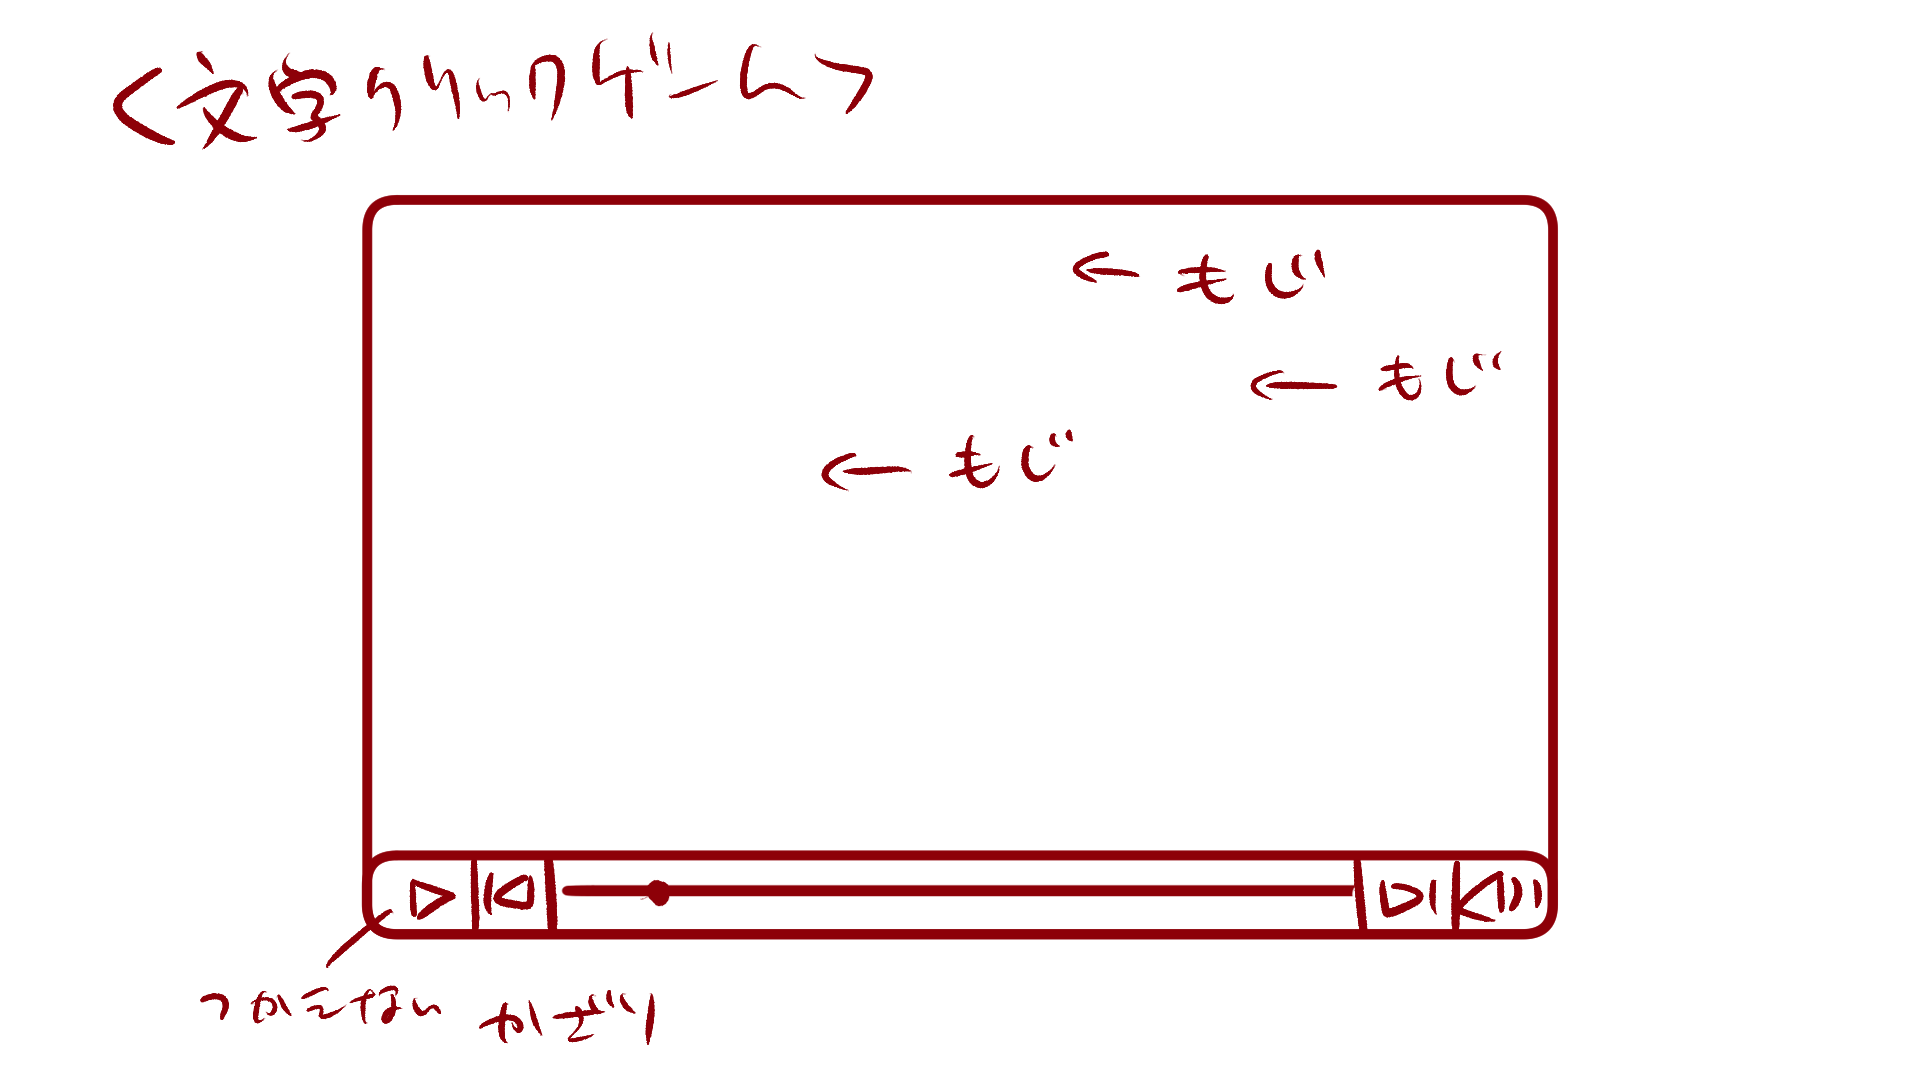 <文字クリックゲーム>
← もじ
← もじ
← もじ
つかえない かざり